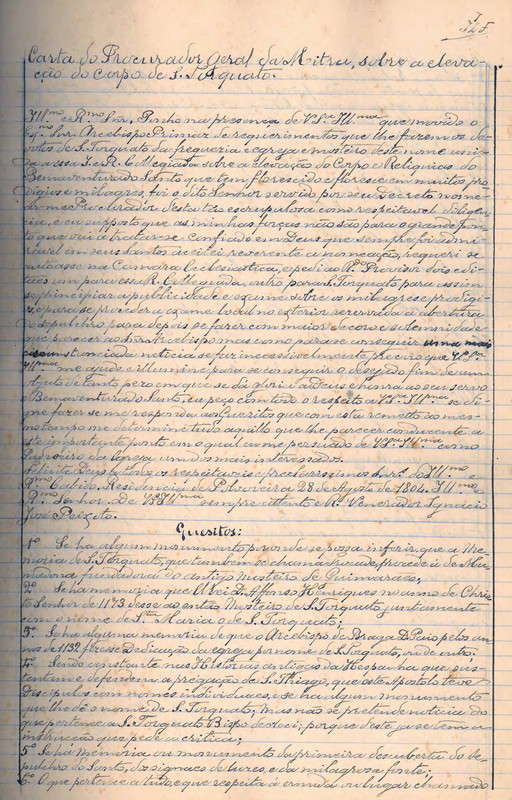 325
Carta do Procurador Geral da Mitra, sobre a eleva-
ção do corpo de S. Torquato.
Illmo e Rmo Snr. Ponho na presença de V. Sa Illma que movido o
Exmo Snr. Arcebispo Primaz de requerimentos que lhe fazem os de-
votos de S. Torquato da freguezia e egreja e mosteiro deste nome uni-
da a essa I. e R. Collegiada sobre a elevação do Corpo e Reliquias do
Bemaventurado Santo que tem florescido e floresce em muitos pro-
digios e milagres, foi o dito Senhor servido por seu Decreto nome-
ar-me Procurador desta tão escrupulosa como respeitavel diligen-
cia, e eu supposto que as minhas forças não são para o grande pon-
to que vai a tratar-se confiado em Deus que sempre foi admi-
ravel em seus Santos aceitei reverente a nomeação, requeri se
autoasse na Camara Ecclesiastica, e pedi ao Rdo Provisor dois edi-
taes um para essa R. Collegiada, outro para S. Torquato para assim
se principiar a publicidade e exame sobre os milagres e prodigi-
os, e para se proceder a exame local no exterior reservada a abertura
do sepulchro para depois se fazer com maior decoro e solemnidade
que parecer ao Snr. Arcebispo mas como para se conseguir uma mais
circumstanciada noticia se faz inecessivelmente preciso que V. Sa
Illma me ajude e illumine para se conseguir o desejado fim de um
objecto de tanto pezo em que se dá gloria a Deus e honra ao seu servo
o Bemaventurado Santo, eu peço com todo o respeito a V. Sa Illma se di-
gne fazer se me responda aos Quesitos que com esta remetto ao mes-
mo tempo me determine tudo aquillo que lhe parecer conducente a
este importante ponto em o qual eu me persuado de V. Sa Illma como
Padroeiro da Egreja um dos mais interessados.
Felicite Deus a todos os respeitaveis e preclarissimos Snrs. do Illmo e
Rmo Cabido. Residencia de Polvoreira 28 de Agosto de 1804. Illmo e
Rmo Senhor. De V. Sa Illma sempre attento e Rte Venerador Ignacio
José Peixoto.
Quesitos:
1o Se ha algum monumento por onde se possa inferir, que a Me-
moria de S. Torquato, que tambem se chamou Torcade, procede já de Mu-
madona fundadora do antigo Mosteiro de Guimarães;
2o Se ha memoria que ElRei D. Affonso Henriques no anno de Chris-
to Senhor de 1173 desse ao então Mosteiro de S. Torquato juntamente
com o nome de Sta Maria o de S. Torquato;
3o Se ha alguma memoria de que o Arcebispo de Braga D. Paio pelos an-
nos de 1132 fizesse dedicação da egreja por nome de S. Torquato, ou de outro.
4o Sendo constante nas Historias antigas da Hespanha que sus-
tentam e defendem a pregação de S. Thiago, que este Apostolo teve
Discipulos com nomes individuaes, e se ha algum monumento
que lhe dê o nome de S. Torquato, mas não se pretende noticia do
que pertence a S. Torquato Bispo de Acci; porque deste já se tem a
instrucção que pede a critica;
5o Se ha memoria ou monumento da primeira descuberta do Se-
pulchro do Santo, dos signaes de luzes, e da milagrosa fonte;
6o O que pertence a tudo, e que respeita á ermida ou lugar chamado